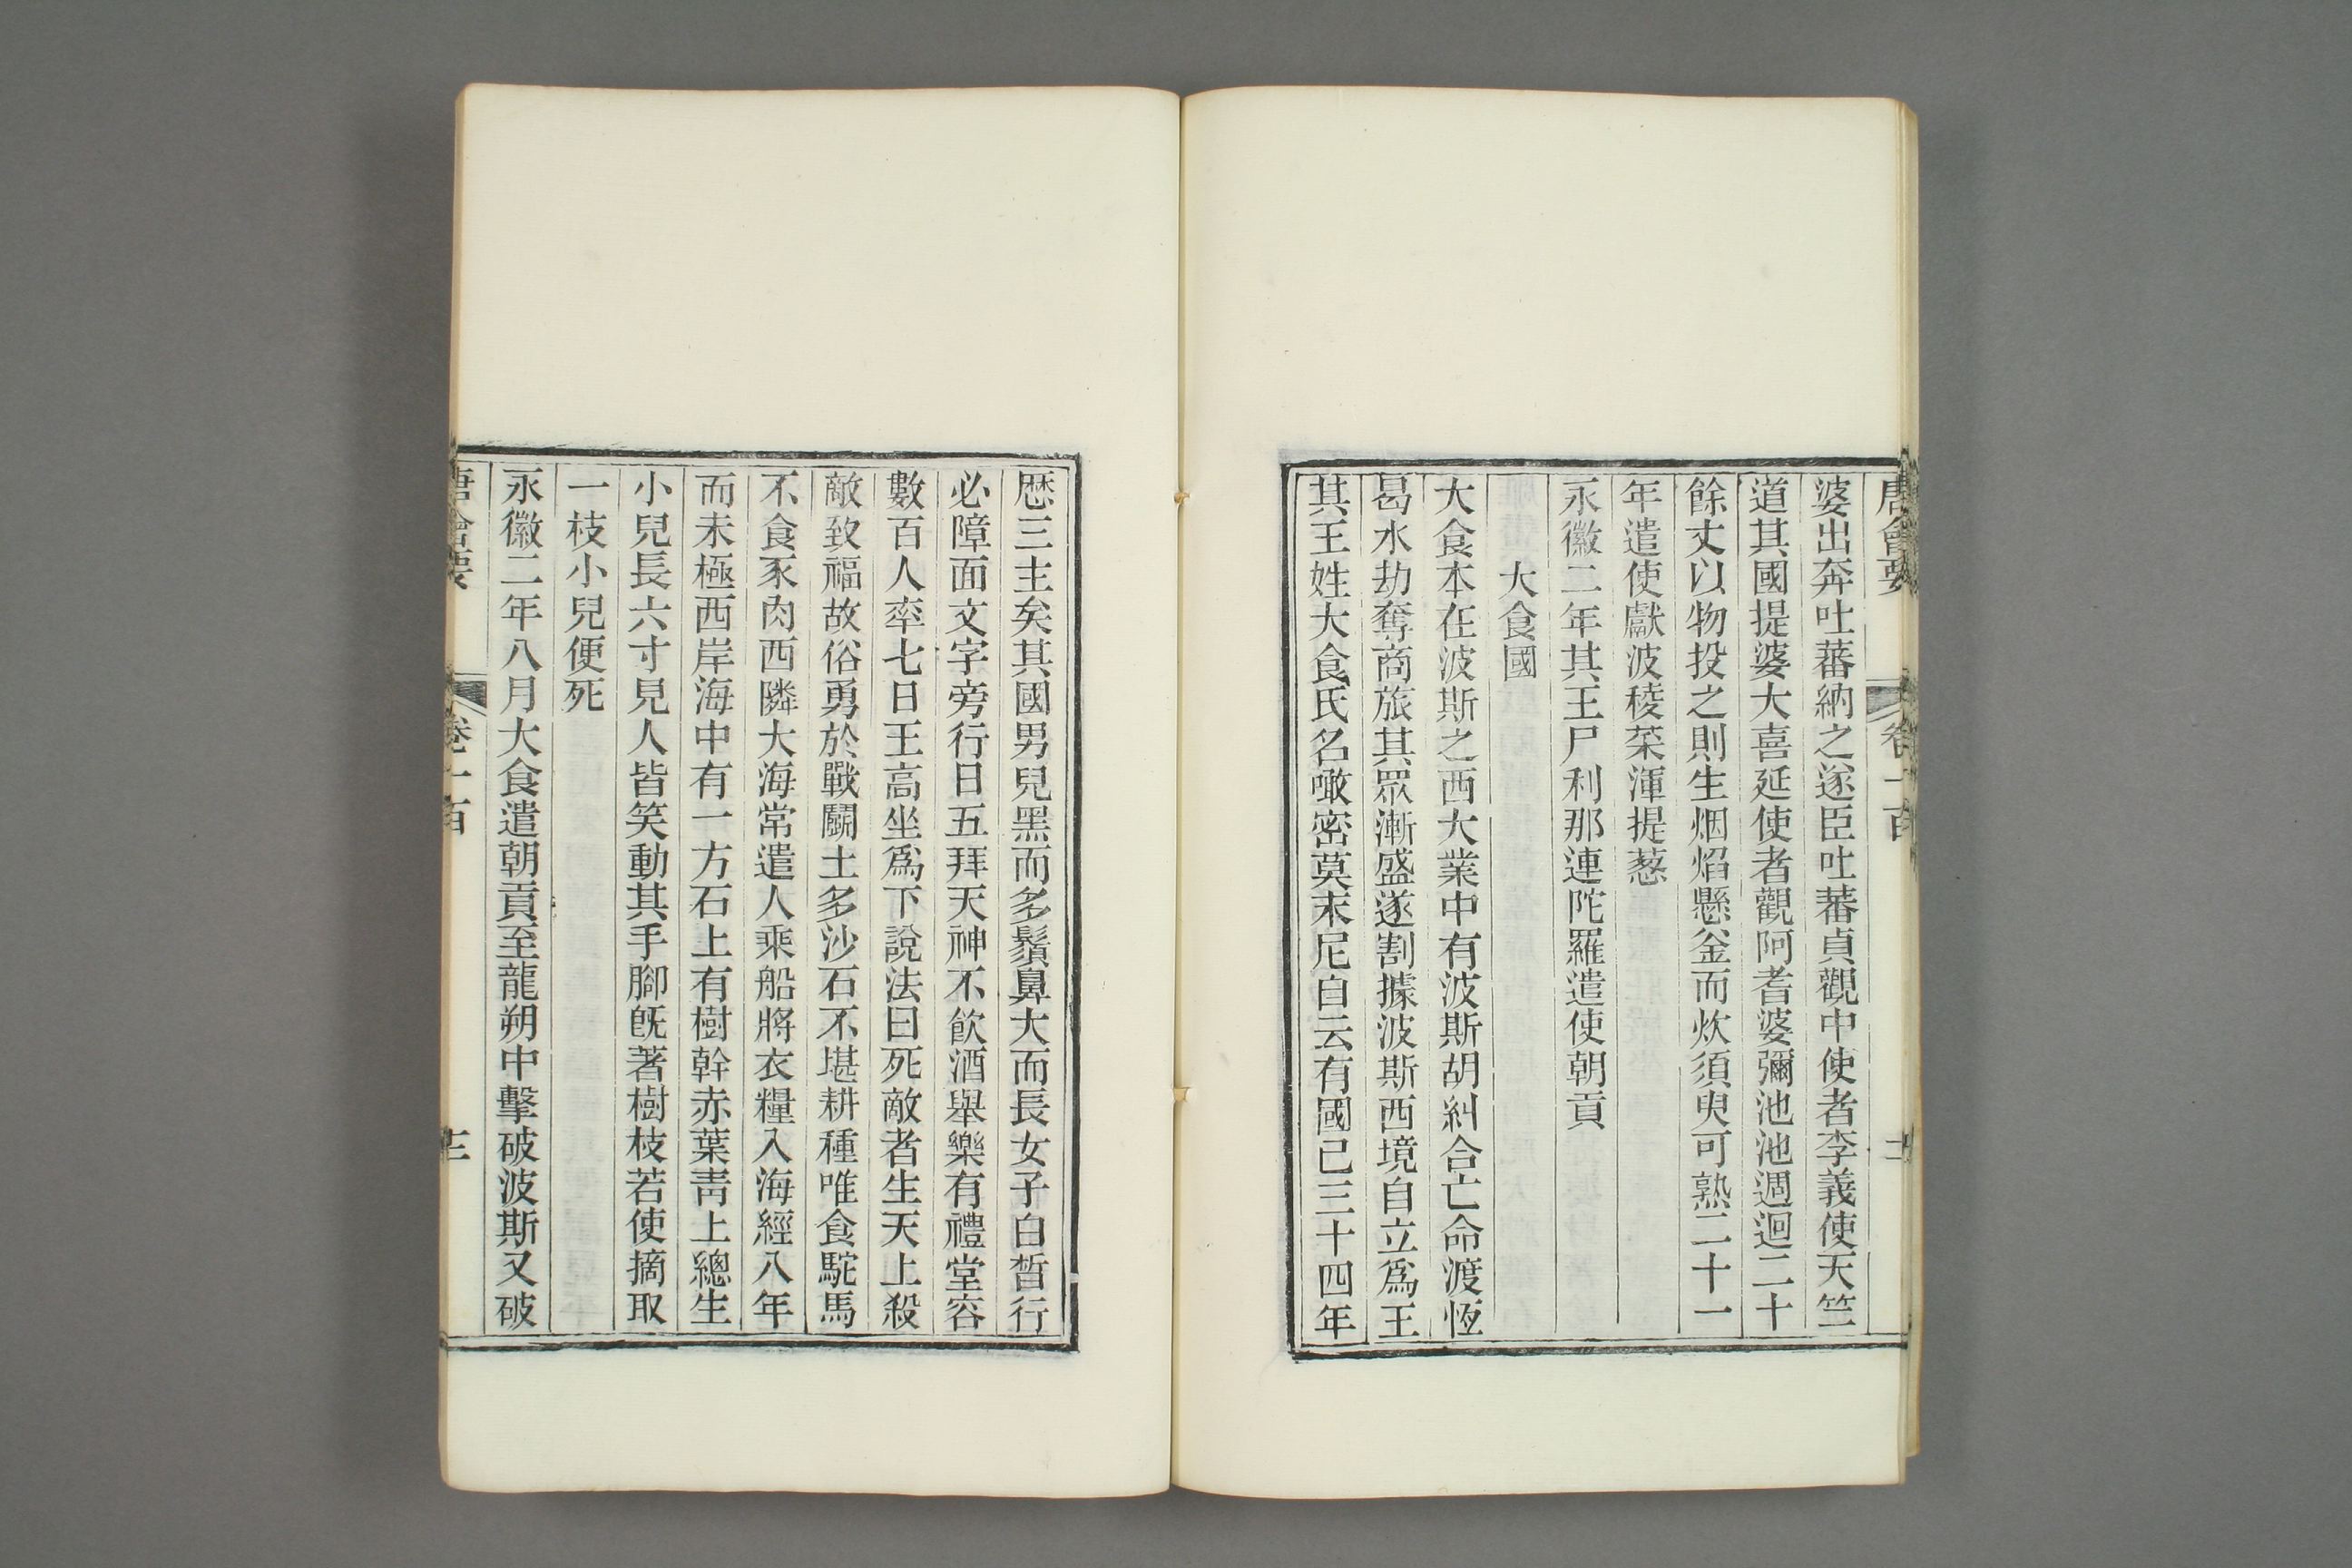 唐會要 卷一百
婆出奔吐蕃納之遂臣吐蕃貞觀中使者李義使天竺
道其國提婆大喜延使者觀阿耆婆彌池池週迴二十
餘丈以物投之則生烟焰懸釜而炊須臾可熟二十一
年遣使獻波稜菜渾提葱
永徽二年其王尸利那連陀羅遣使朝貢
大食國
大食本在波斯之西大業中有波斯胡糾合亡命渡恆
曷水劫奪商旅其眾漸盛遂割據波斯西境自立爲王
其王姓大食氏名噉密莫末尼自云有國已三十四年
歷三主矣其國男兒黑而多鬚鼻大而長女子白皙行
必障面文字旁行日五拜天神不飲酒舉樂有禮堂容
數百人率七日王高坐爲下說法曰死敵者生天上殺
敵致福故俗勇於戰鬭土多沙石不堪耕種唯食駝馬
不食豕肉西隣大海常遣人乘船將衣糧入海經八年
而未極西岸海中有一方石上有樹幹赤葉靑上總生
小兒長六寸見人皆笑動其手腳旣著樹枝若使摘取
一枝小兒便死
永徽二年八月大食遣朝貢至龍朔中擊破波斯又破
唐會要 卷一百